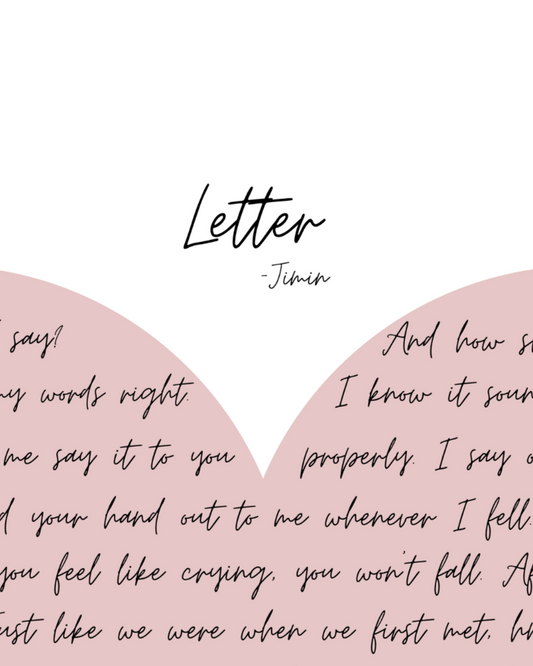 Letter
-Jimin
say?
And how
my words right.
I know it
me say it to you
properly. I say
your hand out to me whenever I fell.
you feel like crying, you won't fall.
like we were when we first met,